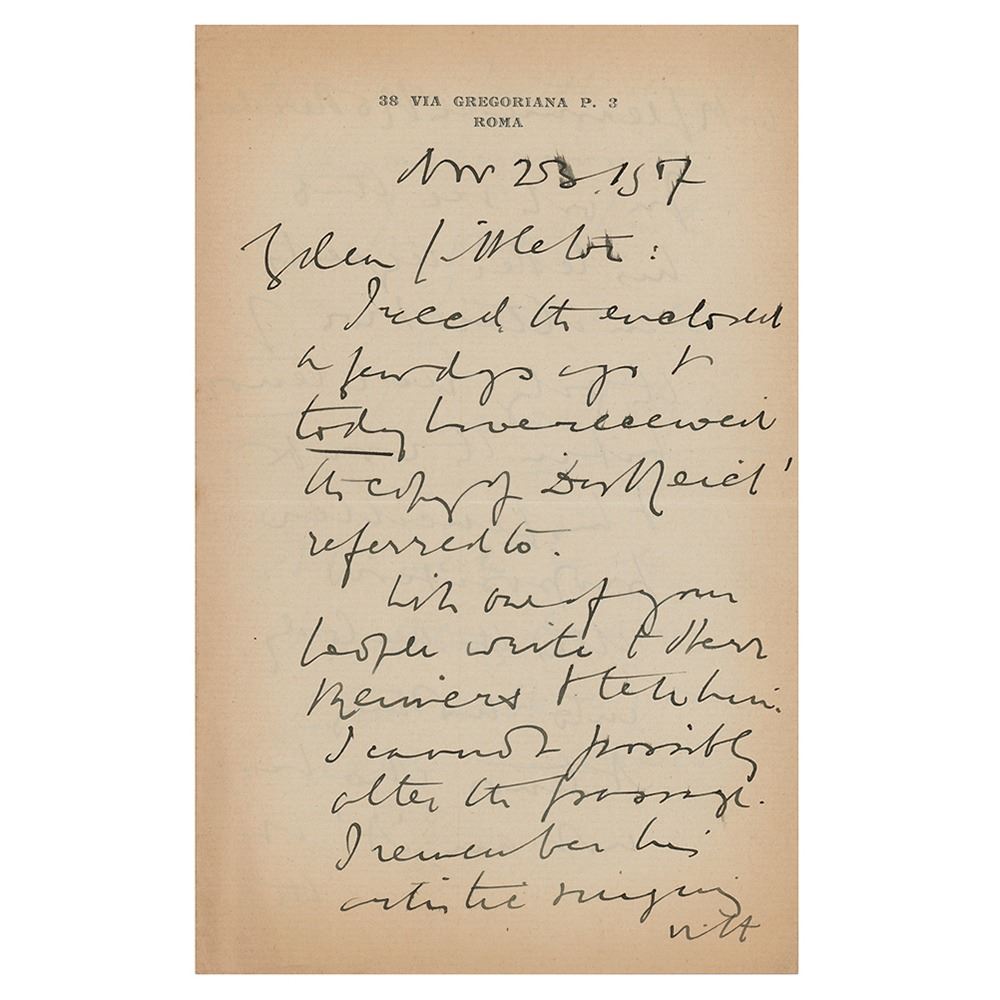 38 VIA GREGORIANA P. 3
ROMA
Nov 23. 1907
My dear Littleton:
I recd. the enclosed
a few days ago &
today have received
the copy of 'Das Reich'
referred to.
Will one of your
people write to Herr
Reimers & tell him
I cannot possibly
alter the passage.
I remember his
artistic singing
with